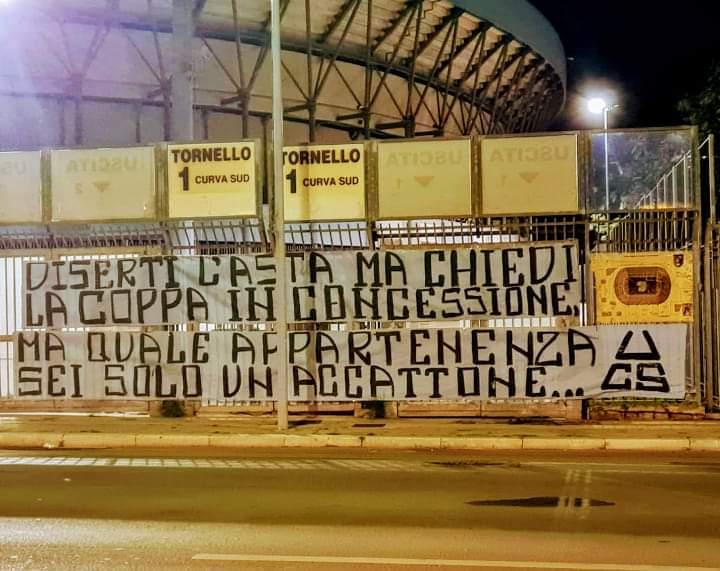 USCITA
TORNELLO
1 CURVA SUD
TORNELLO
1 CURVA SUD
USCITA
USCITA
DISERTI L'ASTA MA CHIEDI
LA COPPA IN CONCESSIONE.
MA QUALE APPARTENENZA
SEI SOLO UN ACCATTONE...
U
CS